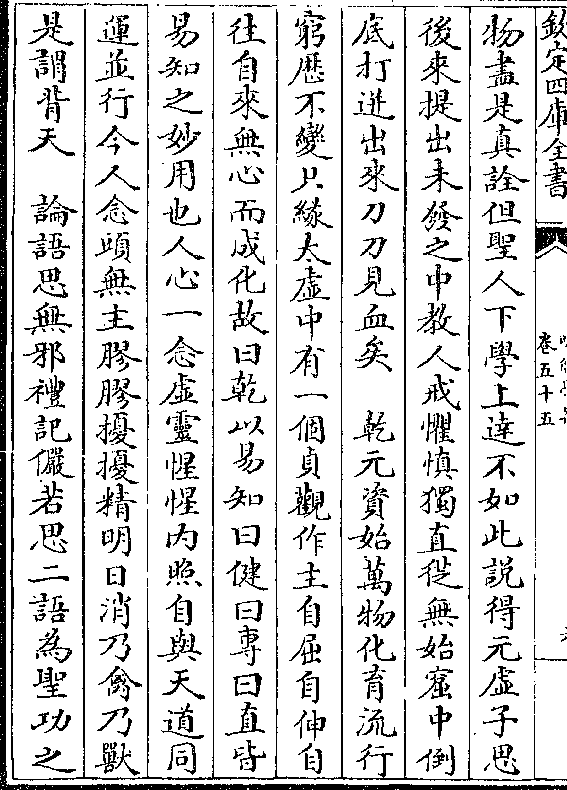 欽定四庫全書
卷五十五
物盡是真詮但聖人下學上達不如此説得元虛子思
後來提出未發之中教人戒懼慎獨直從無始窟中倒
底打迸出來刀刀見血矣　乾元資始萬物化育流行
窮歴不變只縁太虛中有一個貞觀作主自屈自伸自
往自來無心而成化故曰乾以易知曰健曰專曰直皆
易知之妙用也人心一念虛靈惺惺内照自與天道同
運並行今人念頭無主膠膠擾擾精明日消乃禽乃獸
是謂背天　論語思無邪禮記儼若思二語為聖功之